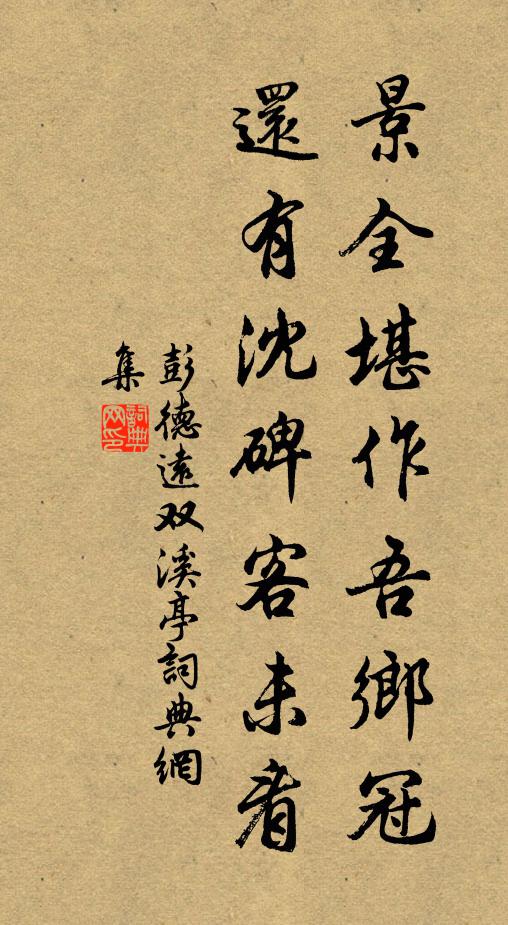 景全堪作吾鄉冠
還有沈碑客未看
彭德遠双溪亭詞典網
集
詞典
网印